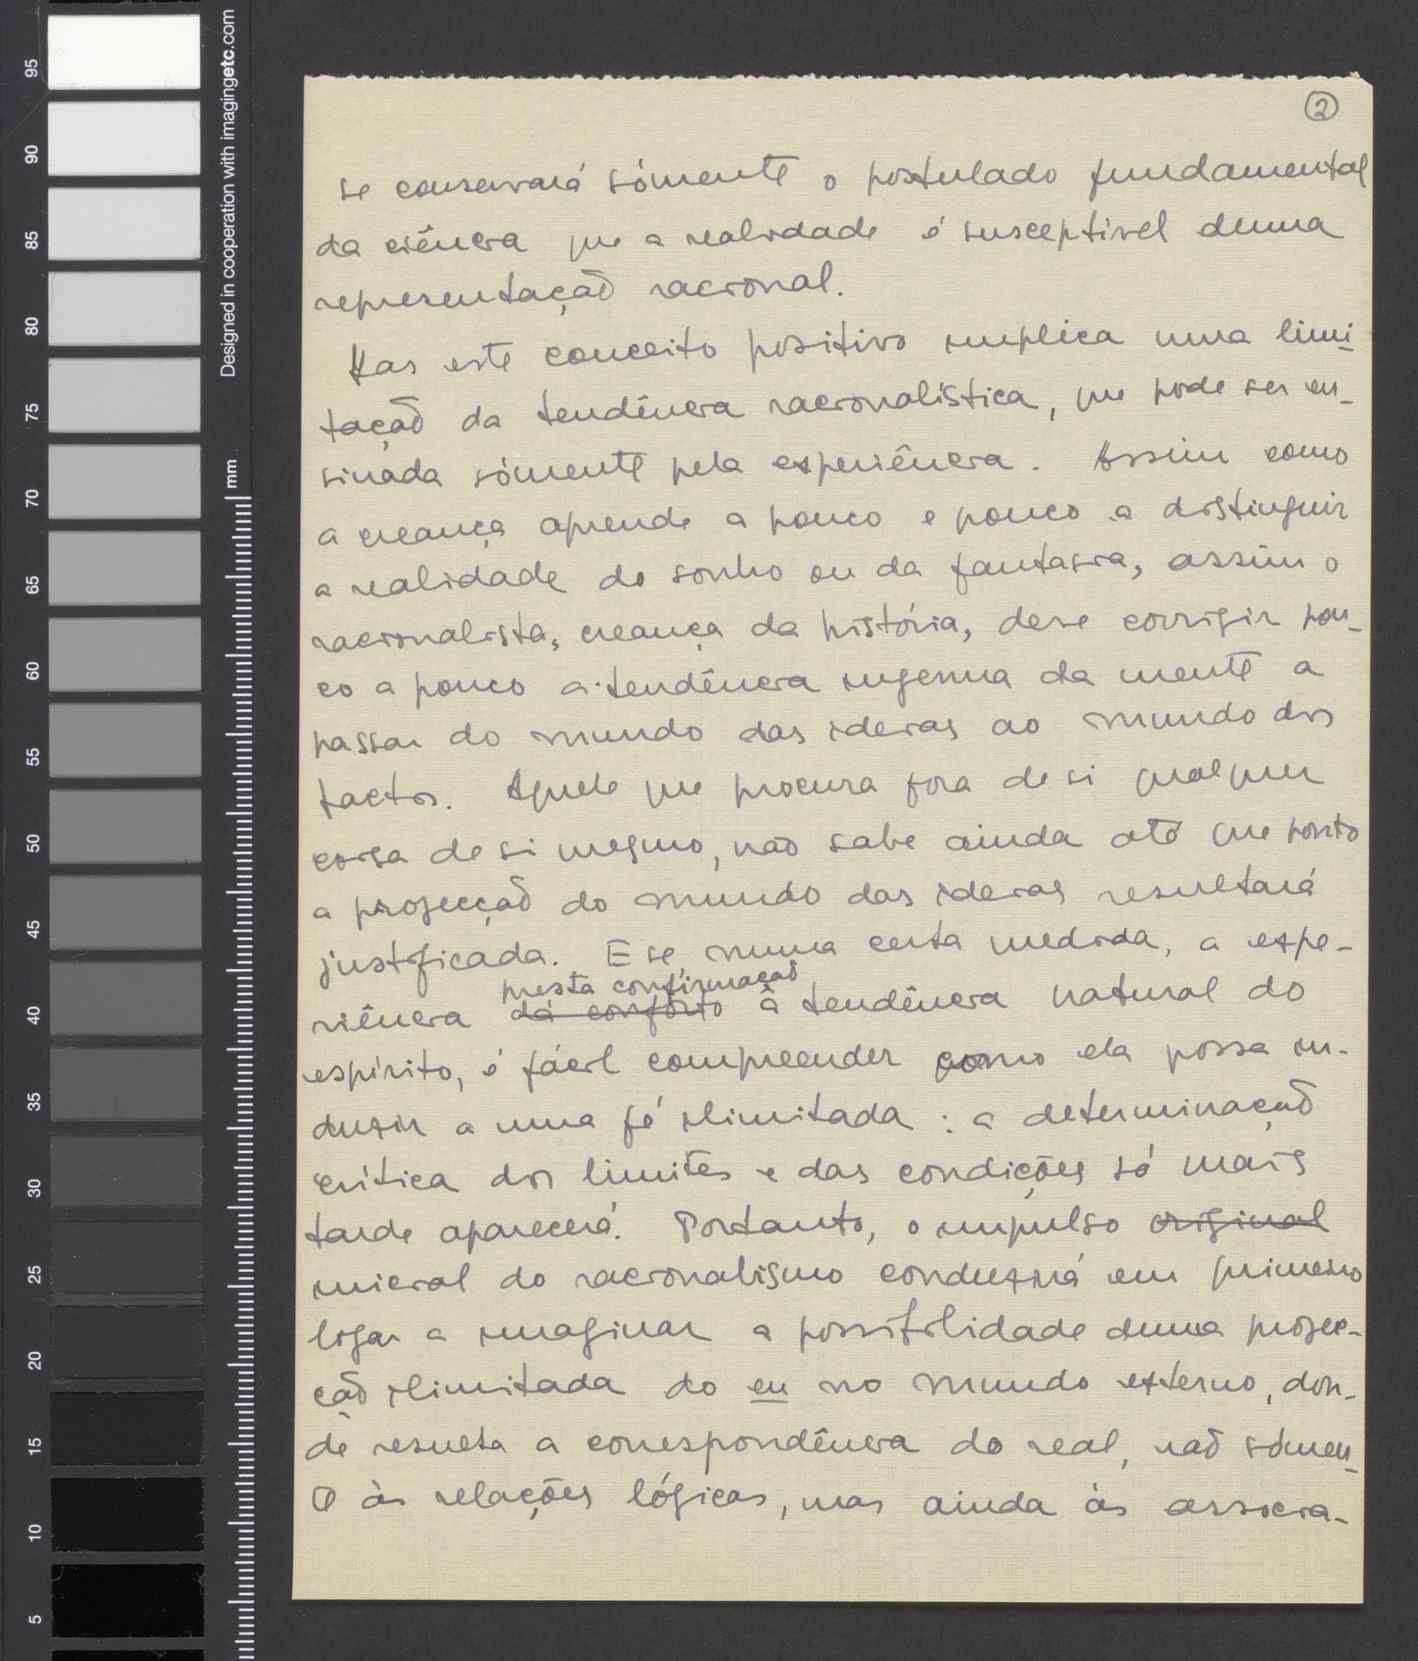 Designed in cooperation with imagingetc.com
mm
95
90
85
80
75
70
65
60
55
50
45
40
35
30
25
20
15
10
5
2
se conservará sòmente o postulado fundamental
da ciência que a realidade é susceptível duma
representação racional.
Mas este conceito positivo implica uma limi-
tação da tendência racionalística, que pode ser en-
sinada sòmente pela experiência. Assim como
a creança aprende a pouco e pouco a distinguir
a realidade do sonho ou da fantasia, assim o
racionalista, creança da história, deve corrigir pou-
co a pouco a tendência ingenua da mente a
passar do mundo das ideias ao mundo dos
factos. Aquele que procura fora de si qualquer
coisa de si mesmo, não sabe ainda até que ponto
a projecção do mundo das ideias resultará
justificada. E se, numa certa medida, a expe-
presta confirmação
riência dá conforto à tendência natural do
espírito, é fácil compreender como ela possa in-
duzir a uma fé ilimitada : a determinação
crítica dos limites e das condições só mais
tarde aparecerá. Portanto, o impulso original
inicial do racionalismo conduzirá em primeiro
logar a imaginar a possibilidade duma projec-
ção ilimitada do eu no mundo externo, don-
de resulta a correspondência do real, não sòmen-
te às relações lógicas, mas ainda às associa-